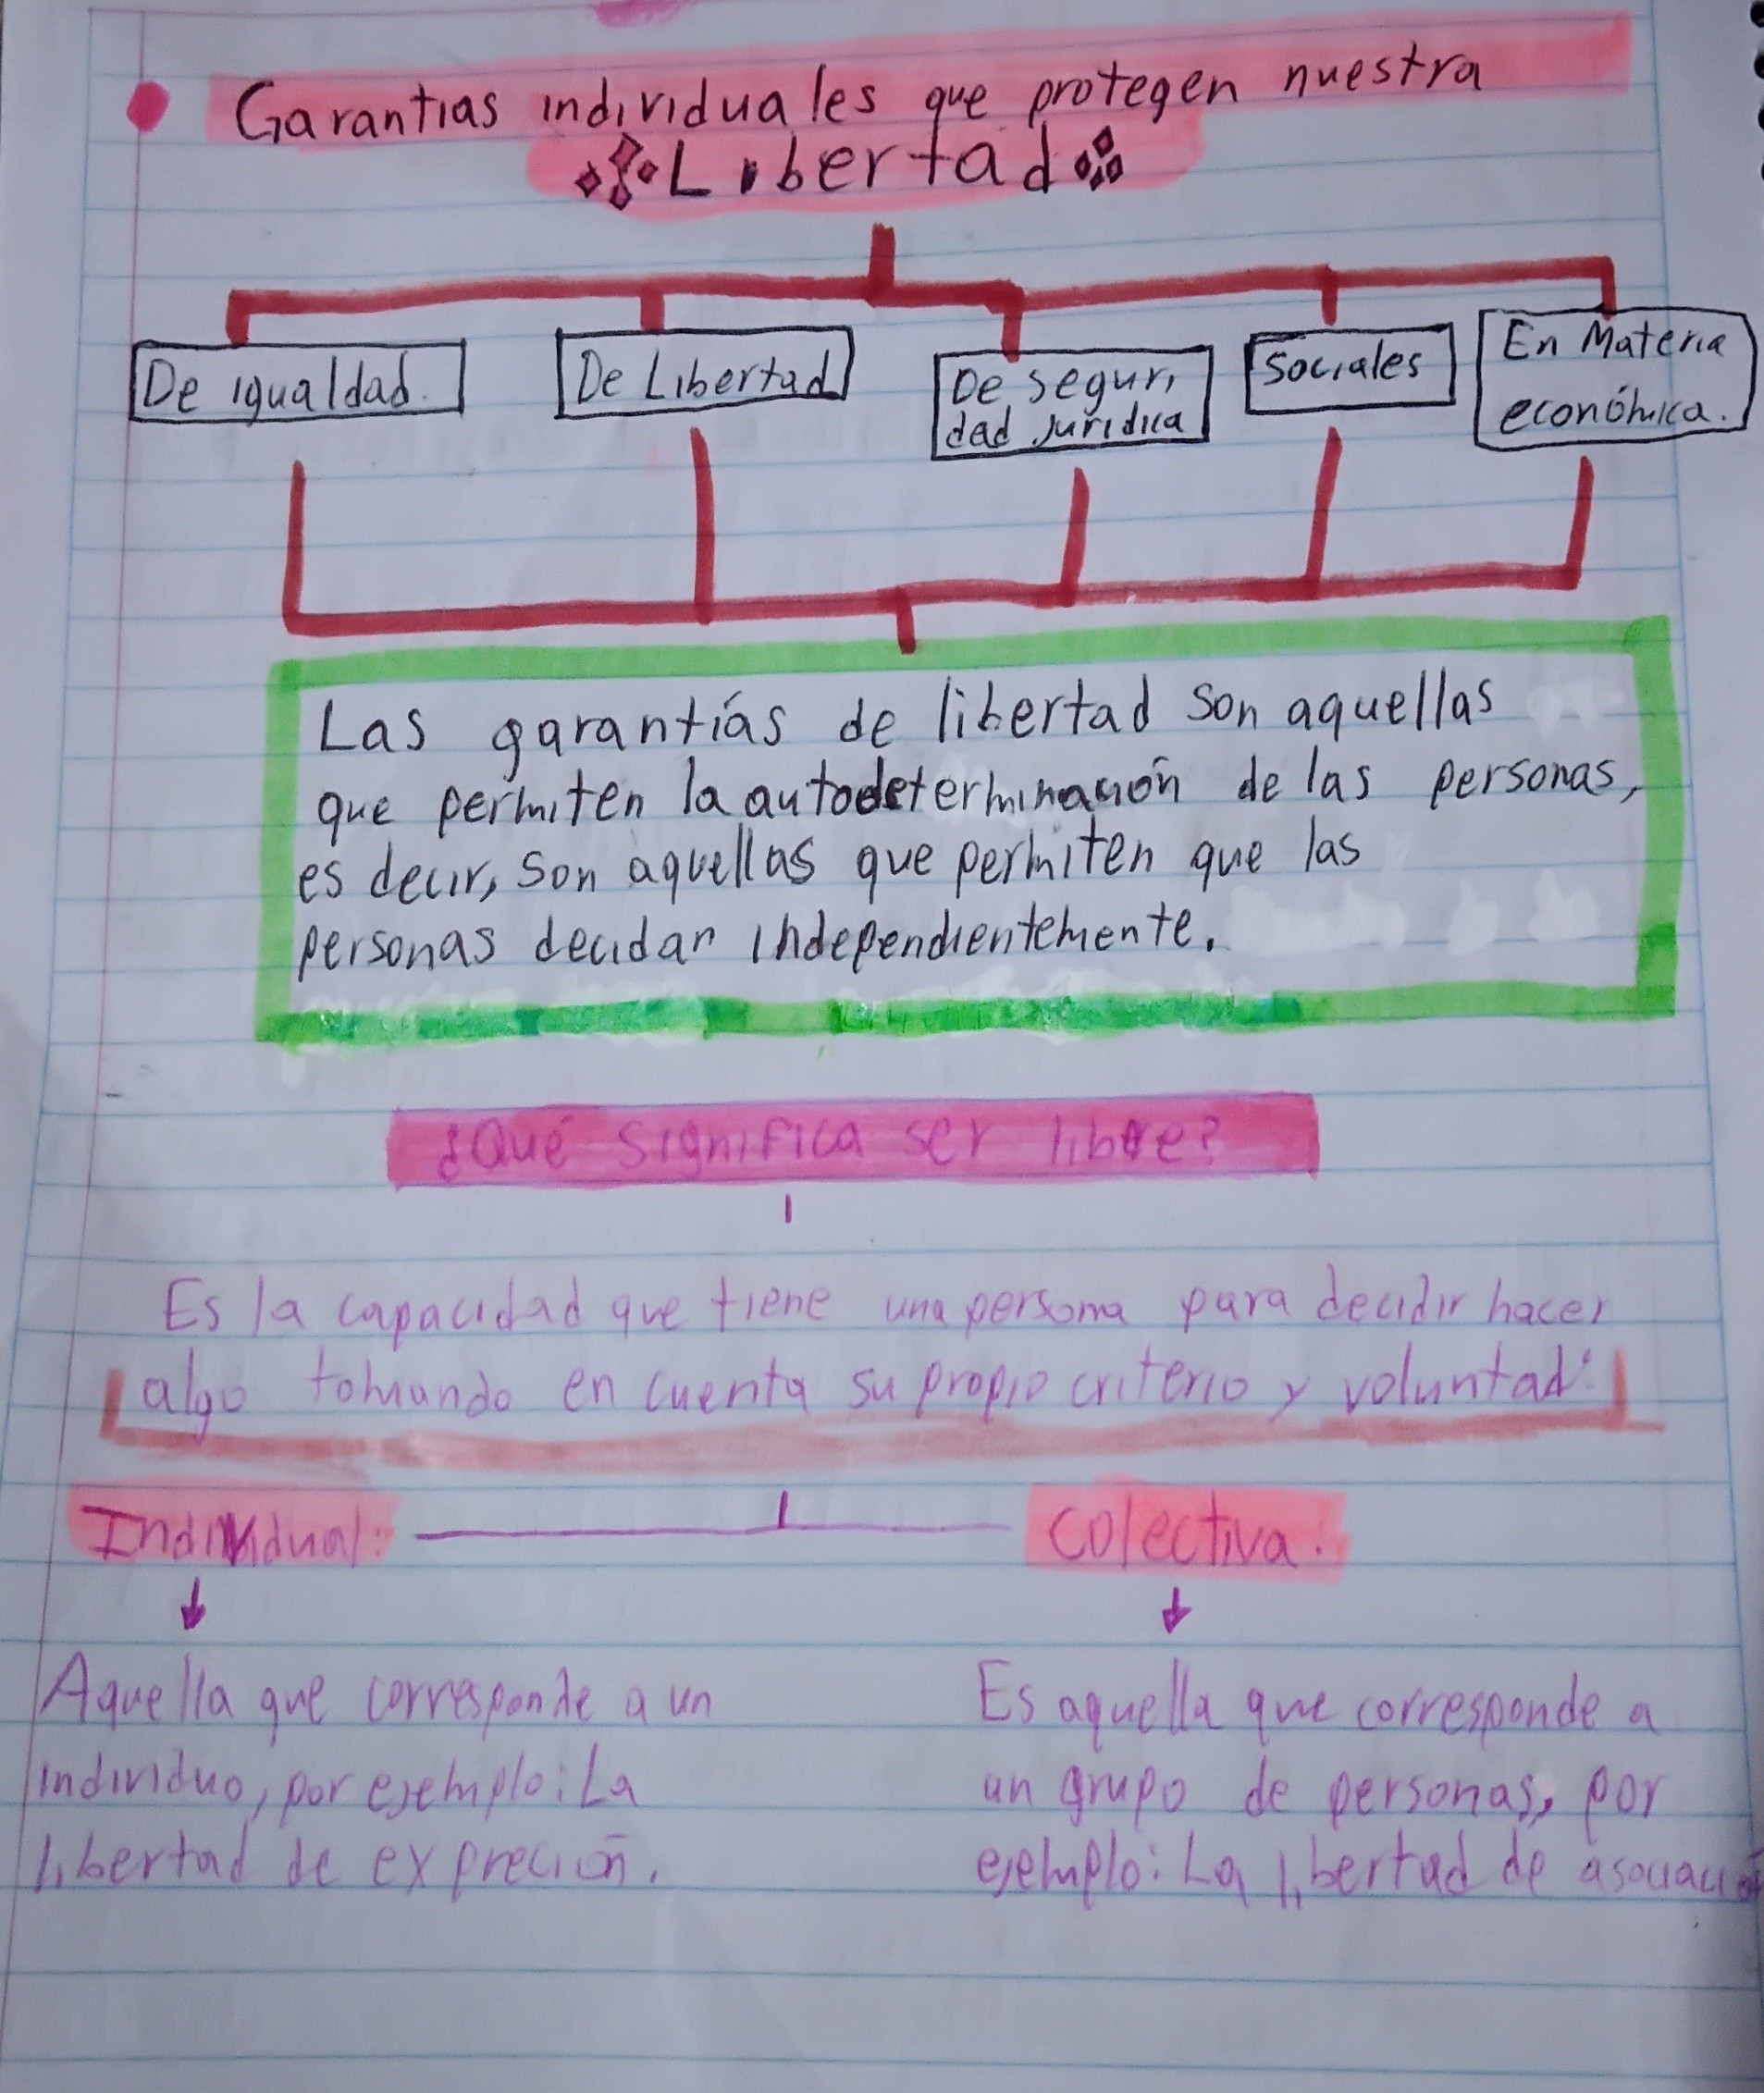 Garantias individuales que protegen nuestra
Libertad
De igualdad.
De Libertad
De seguri
dad jurídica
Sociales
En Materia
económica.
Las garantías de libertad son aquellas
que permiten la autodeterminación de las personas,
es decir, son aquellas que permiten que las
personas decidan independientemente.
¿Qué significa ser libre?
Es la capacidad que tiene una persona para decidir hacer
algo tomando en cuenta su propio criterio y voluntad:
Individual:
Colectiva:
Aquella que corresponde a un
individuo, por ejemplo: La
libertad de expreción.
Es aquella que corresponde a
un grupo de personas, por
ejemplo: La libertad de asociación